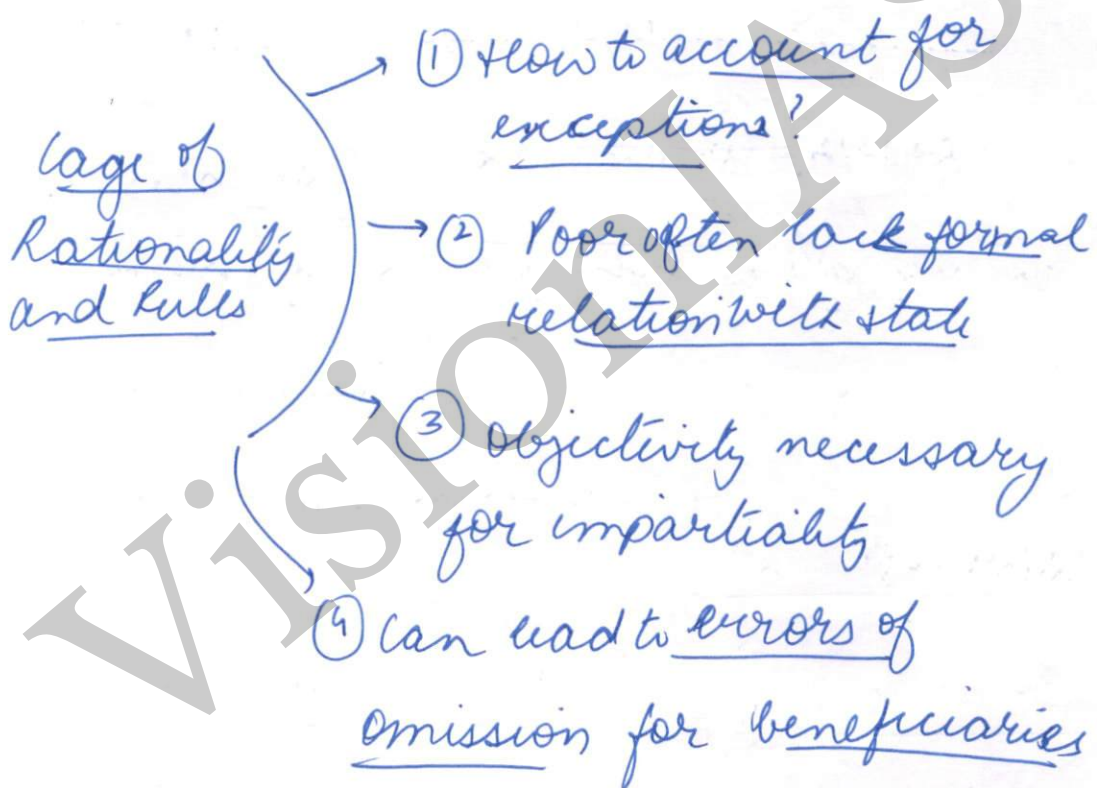 Cage of
Rationality
and Rules
① How to account for
exceptions?
② Poor often lack formal
relation with state
③ Objectivity necessary
for impartiality
④ Can lead to errors of
omission for beneficiaries
VisionIAS